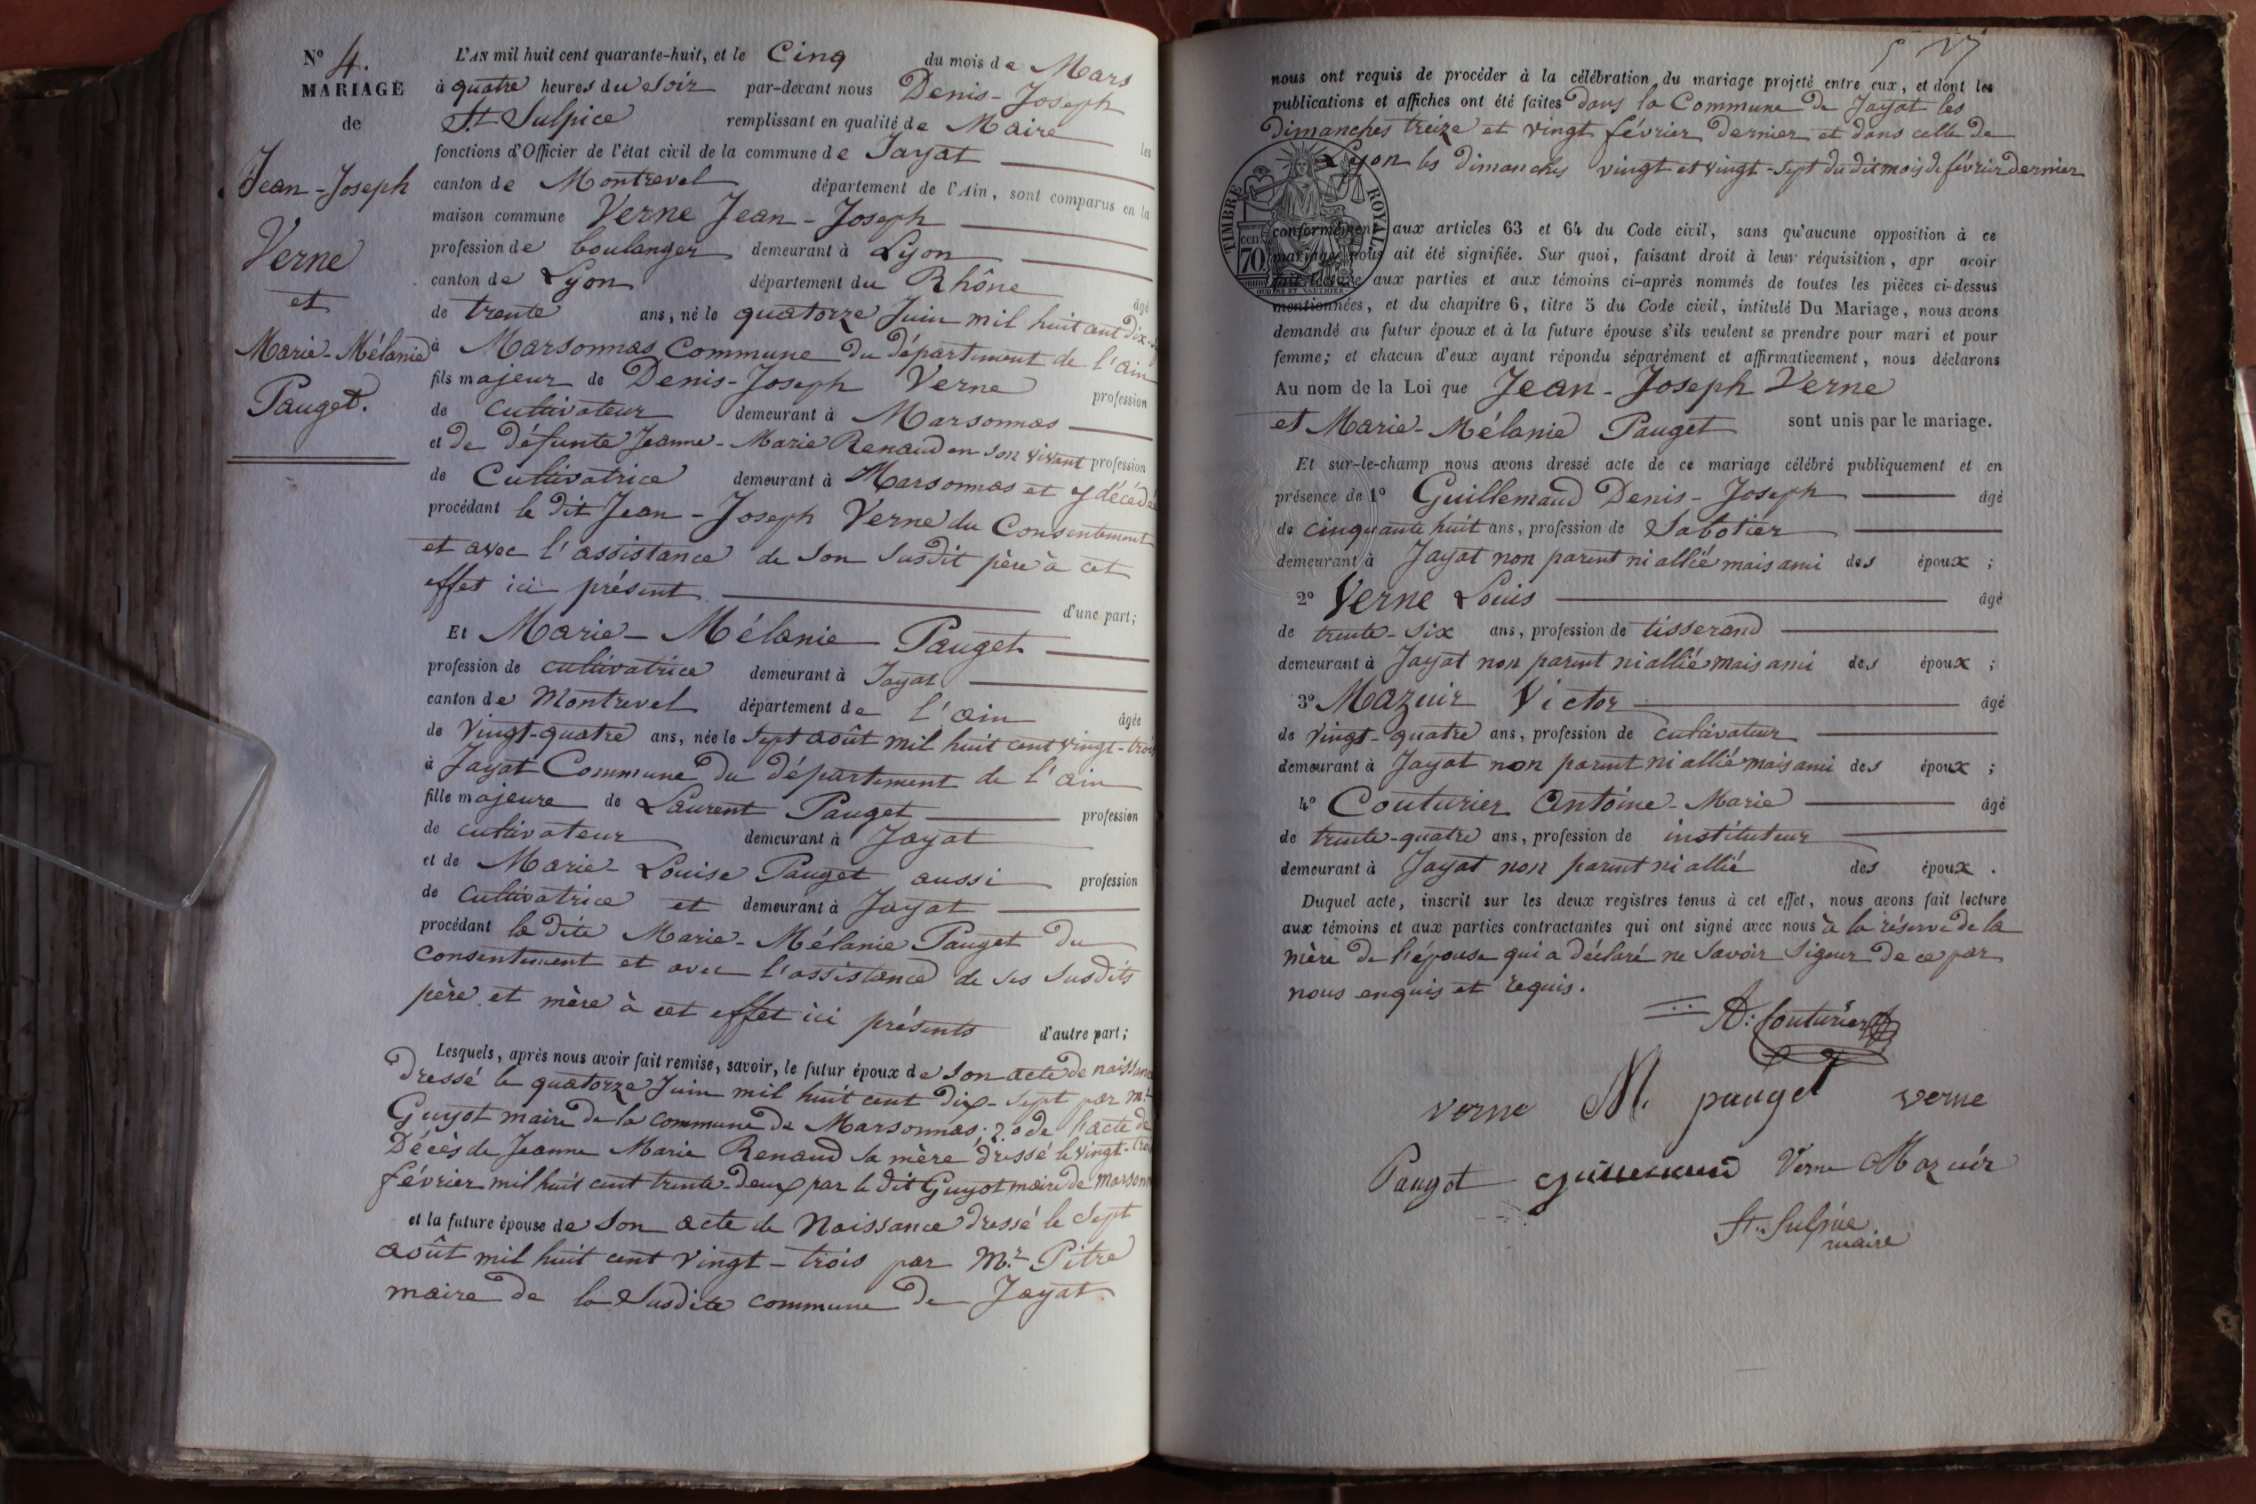 N.º 4.
MARIAGE
de
Jean-Joseph
Verne
et
Marie-Mélanie
Pauget.
L'AN mil huit cent quarante-huit, et le Cinq du mois de Mars
à quatre heures du soir par-devant nous Denis-Joseph
St Sulpice remplissant en qualité de Maire les
fonctions d'Officier de l'état civil de la commune de Jayat
canton de Montrevel département de l'Ain, sont comparus en la
maison commune Verne Jean-Joseph
profession de boulanger demeurant à Lyon
canton de Lyon département du Rhône âgé
de trente ans, né le quatorze Juin mil huit cent dix-
à Marsonnas Commune du département de l'ain
fils majeur de Denis-Joseph Verne profession
de cultivateur demeurant à Marsonnas
et de défunte Jeanne-Marie Renaud en son vivant profession
de Cultivatrice demeurant à Marsonnas et y décédée
procédant le dit Jean-Joseph Verne du Consentement
et avec l'assistance de son susdit père à cet
effet ici présent d'une part;
Et Marie-Mélanie Pauget
profession de cultivatrice demeurant à Jayat
canton de Montrevel département de l'ain âgée
de vingt-quatre ans, née le sept août mil huit cent vingt-trois
à Jayat Commune du département de l'ain
fille majeure de Laurent Pauget profession
de cultivateur demeurant à Jayat
et de Marie-Louise Pauget aussi profession
de cultivatrice et demeurant à Jayat
procédant la dite Marie-Mélanie Pauget du
consentement et avec l'assistance de ses susdits
père et mère à cet effet ici présents d'autre part;
Lesquels, après nous avoir fait remise, savoir, le futur époux de son acte de naissance
dressé le quatorze Juin mil huit cent dix-sept par Mr
Guyot maire de la commune de Marsonnas; 2º de l'acte de
Décès de Jeanne Marie Renaud sa mère dressé le vingt-trois
février mil huit cent trente-deux par le dit Guyot maire de marsonn
et la future épouse de son acte de Naissance dressé le sept
août mil huit cent vingt-trois par Mr Pitre
maire de la susdite commune de Jayat.
nous ont requis de procéder à la célébration du mariage projeté entre eux, et dont les
publications et affiches ont été faites dans la Commune de Jayat les
dimanches treize et vingt février dernier et dans celle de
Lyon les dimanches vingt et vingt-sept du dit mois de février dernier
TIMBRE ROYAL
70
conformément aux articles 63 et 64 du Code civil, sans qu'aucune opposition à ce
mariage nous ait été signifiée. Sur quoi, faisant droit à leur réquisition, apr avoir
fait lecture aux parties et aux témoins ci-après nommés de toutes les pièces ci-dessus
mentionnées, et du chapitre 6, titre 5 du Code civil, intitulé Du Mariage, nous avons
demandé au futur époux et à la future épouse s'ils veulent se prendre pour mari et pour
femme; et chacun d'eux ayant répondu séparément et affirmativement, nous déclarons
Au nom de la Loi que Jean-Joseph Verne
et Marie-Mélanie Pauget sont unis par le mariage.
Et sur-le-champ nous avons dressé acte de ce mariage célébré publiquement et en
présence de 1º Guillemaud Denis-Joseph âgé
de cinquante huit ans, profession de Sabotier
demeurant à Jayat non parent ni allié mais ami des époux;
2º Verne Louis âgé
de trente-six ans, profession de tisserand
demeurant à Jayat non parent ni allié mais ami des époux;
3º Mazuir Victor âgé
de vingt-quatre ans, profession de cultivateur
demeurant à Jayat non parent ni allié mais ami des époux;
4º Couturier Antoine-Marie âgé
de trente-quatre ans, profession de instituteur
demeurant à Jayat non parent ni allié des époux.
Duquel acte, inscrit sur les deux registres tenus à cet effet, nous avons fait lecture
aux témoins et aux parties contractantes qui ont signé avec nous à la réserve de la
mère de l'épouse qui a déclaré ne savoir signer de ce par
nous enquis et requis.
A: Couturier
verne M. pauget verne
Pauget guillemaud Verne Mazuir
St. Sulpice
maire